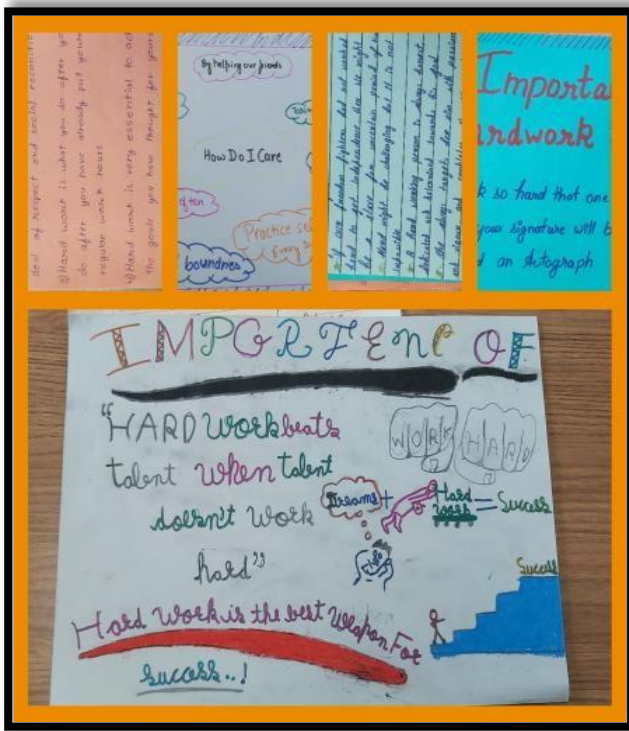 deal of respect and social recognitio
3) Hard work is what you do after yo
do after you have already put your
regular work hours
4) Hard work is very essential to ac
the goals you have thought for yours
By helping our friends
How Do I Care
often
Practice se
Every
boundries
if our freedom fighters had not worked
hard to get independence then we might
be a slave for uncertain period of
Hard might be challenging but it is not
impossible
A hard working person is always honest,
dedicated and determined towards his goal
He always targets
Importa
ardwork
k so hard that one
your signature will b
d an Autograph
IMPORTENC OF
"HARD Work beats
talent when talent
doesn't work
hard"
WORK HARD
Dreams + Hard work = Success
Success
Hard Work is the best Weapon For
success..!